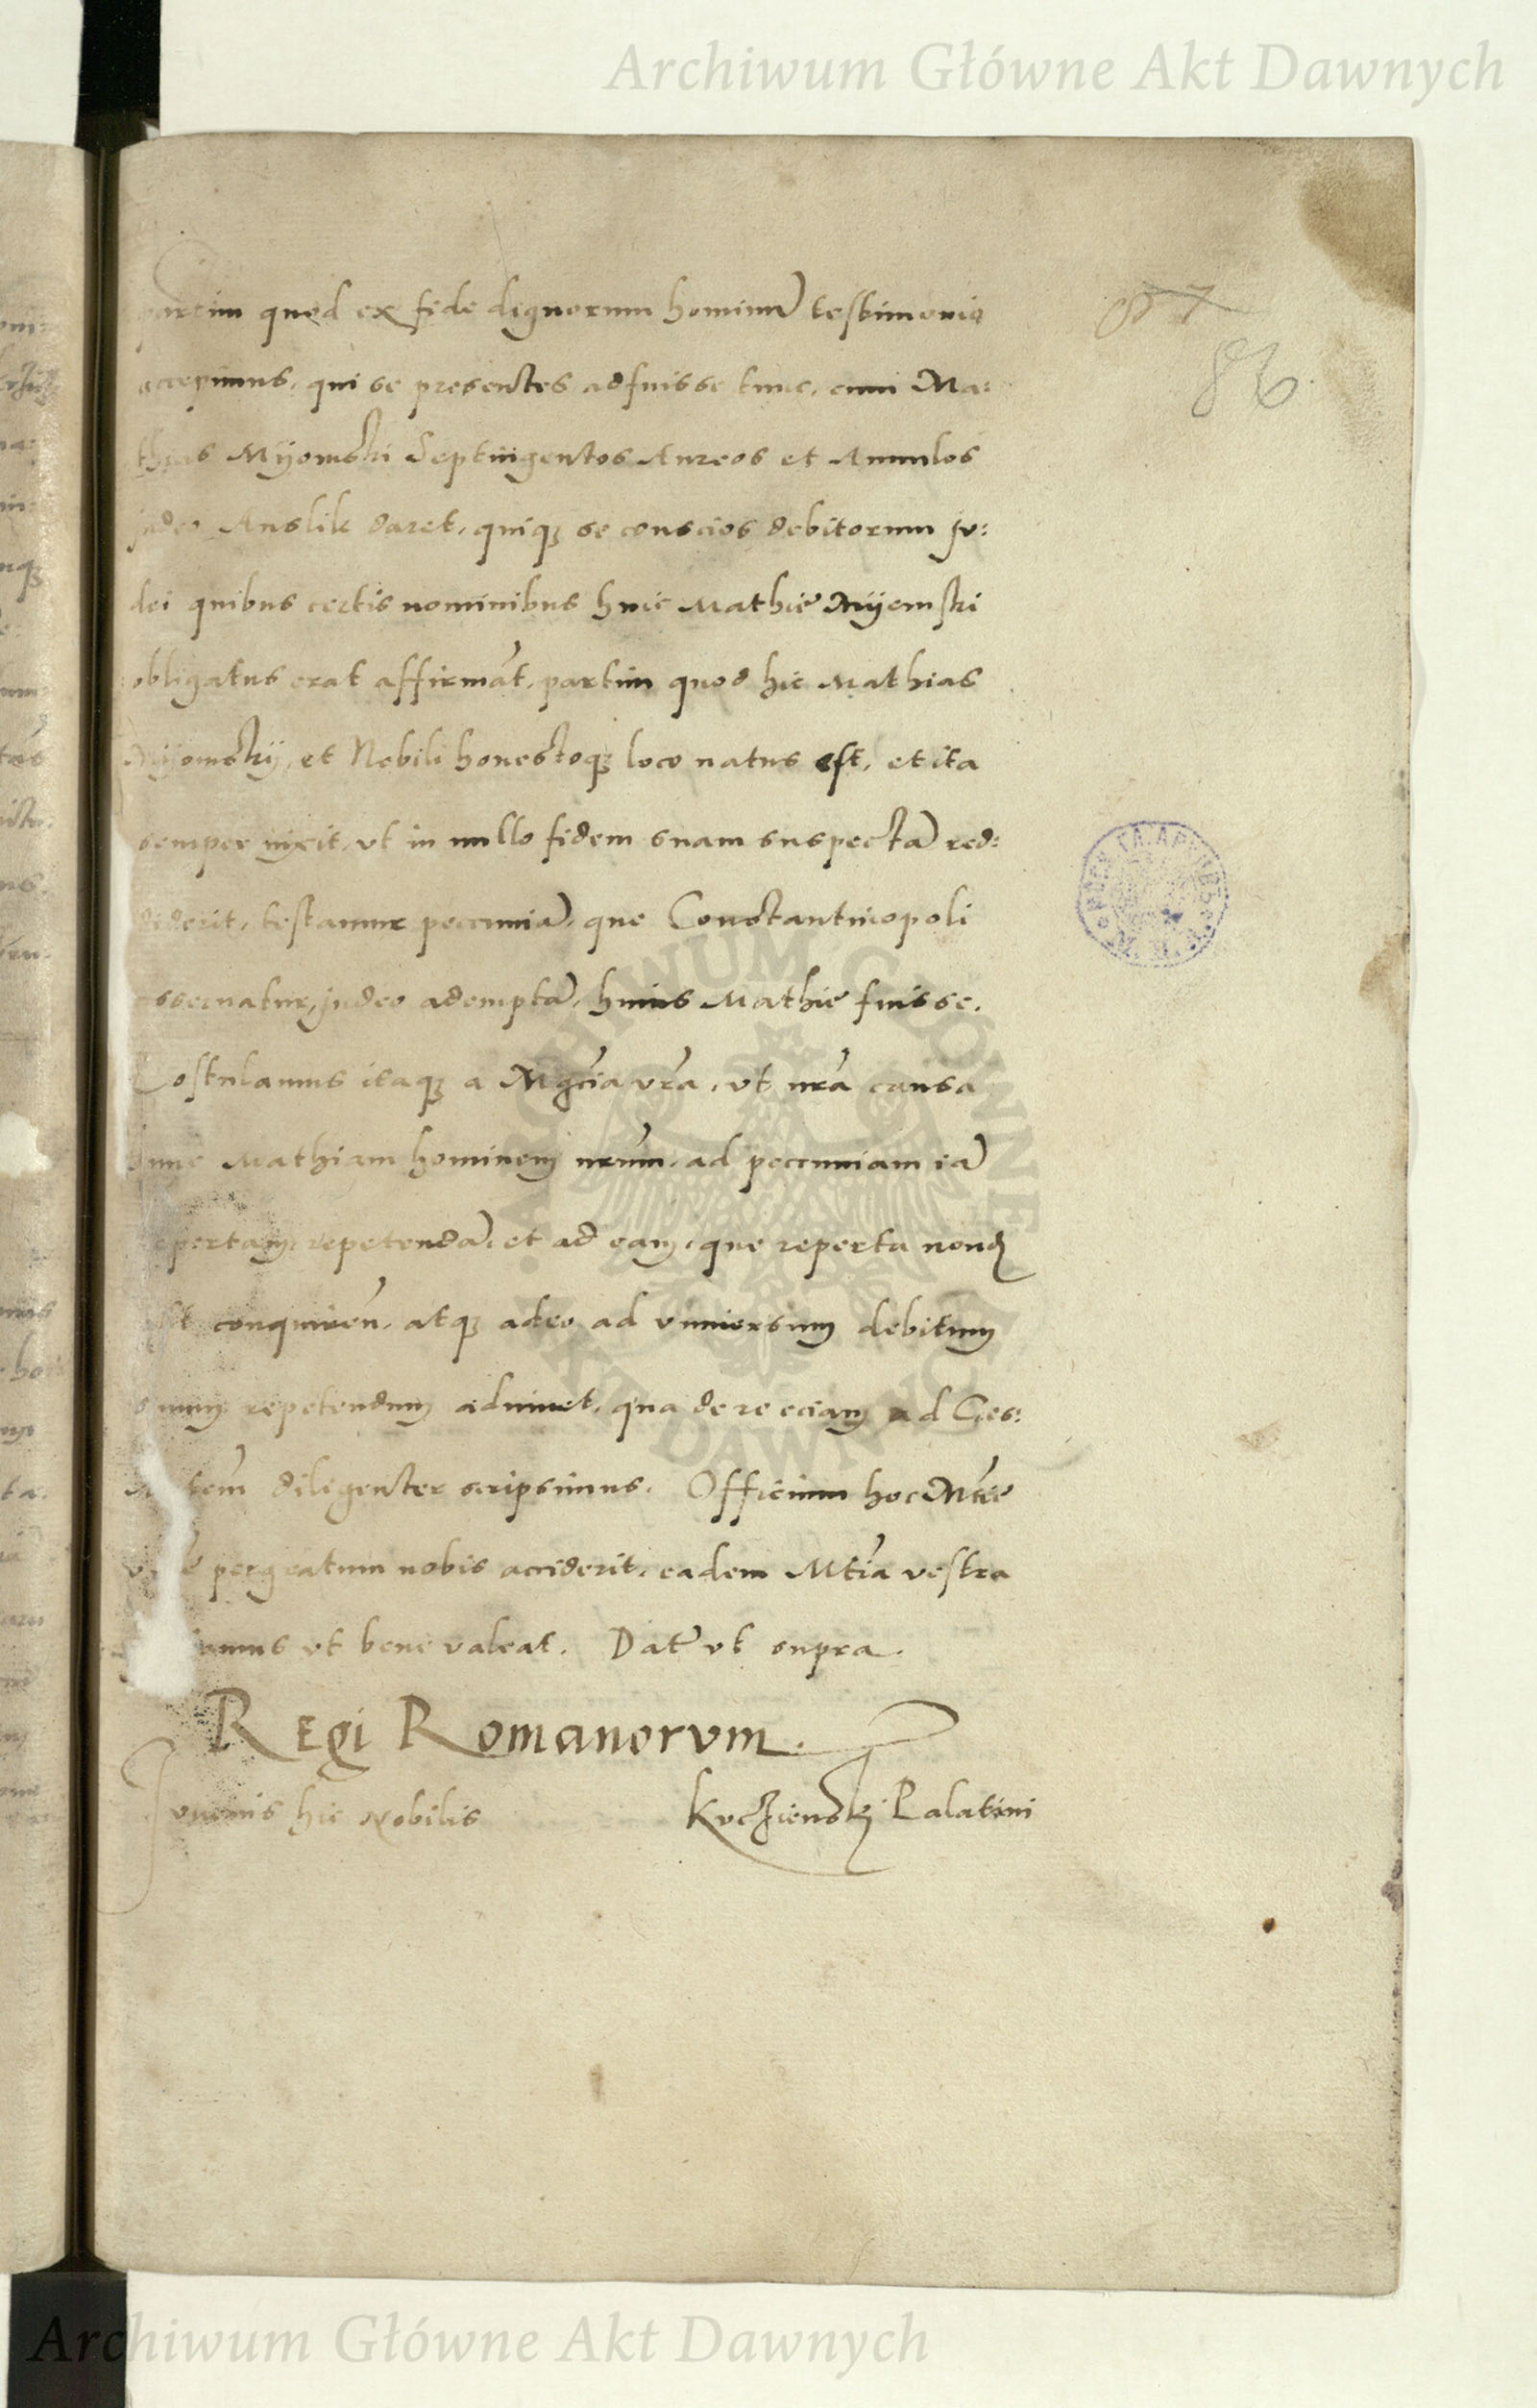 Archiwum Główne Akt Dawnych
partim quod ex fide dignorum hominũ testimonio
accepimus, qui se presentes adfuisse tunc, cum Ma:
thias Myomski Septingentos Aureos et Annulos
judeo Anslik daret, quiqꝫ se conscios debitorum Ju:
dei quibus certis nominibus huic Mathie Myemski
obligatus erat affirmãt, partim quod hic Mathias
Myomsky, et Nobili honestoqꝫ loco natus est, et ita
semper vixit, vt in nullo fidem suam suspectã red:
diderit, testamur peccuniã, que Constantinopoli
asseruatur, judeo ademptã, huius Mathie fuisse.
Postulamus itaqꝫ a Mgcia vra, vt nra causa
hunc Mathiam hominem nrum, ad peccuniam eã
repertam, repetendã, et ad eam, que reperta nond
est conquiren, atqꝫ adeo ad vniuersum debitum
suum repetendum adiuuet, qua de re eciam ad Ces:
tem diligenter scripsimus. Officium hoc Mtie
pergratum nobis acciderit, eadem Mtia vestra
ut bene valeat. Dat vt supra.
Regi Romanorum.
Juuenis hic Nobilis Kuczienski Palatini
87
86
ARCHIWUM GŁÓWNE AKT DAWNYCH
Archiwum Główne Akt Dawnych